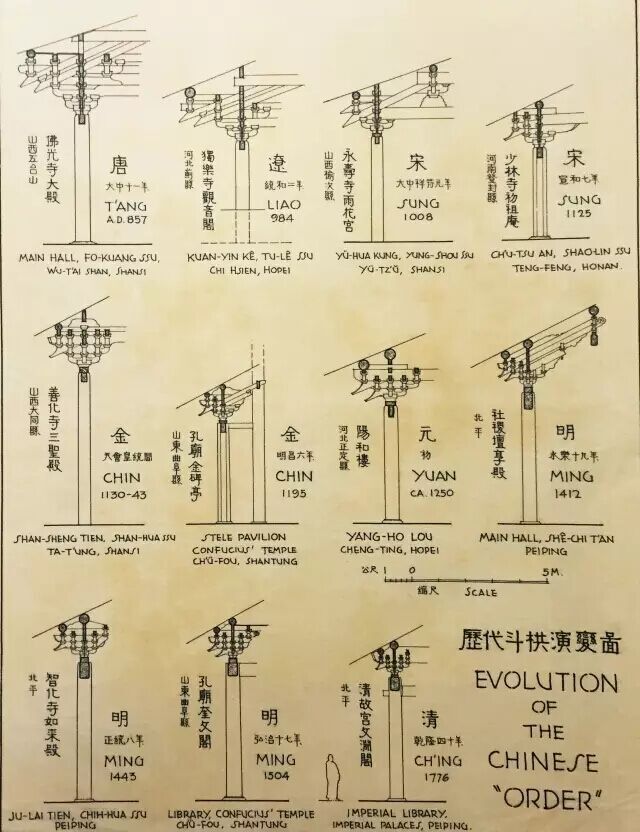 佛光寺大殿
山西五台山
唐
大中十一年
T'ANG
A.D. 857
MAIN HALL, FO-KUANG SSU,
WU-T'AI SHAN, SHANSI
獨樂寺觀音閣
河北薊縣
遼
統和二年
LIAO
984
KUAN-YIN KÊ, TU-LÊ SSU
CHI HSIEN, HOPEI
永壽寺雨花宮
山西榆次縣
宋
大中祥符元年
SUNG
1008
YÜ-HUA KUNG, YUNG-SHOU SSU
YÜ-TZ'Ŭ, SHANSI
少林寺初祖庵
河南登封縣
宋
宣和七年
SUNG
1125
CH'U-TSU AN, SHAO-LIN SSU
TENG-FENG, HONAN.
善化寺三聖殿
山西大同縣
金
天會皇統間
CHIN
1130-43
SHAN-SHENG TIEN, SHAN-HUA SSU
TA-T'UNG, SHANSI
孔廟金碑亭
山東曲阜縣
金
明昌六年
CHIN
1195
STELE PAVILION
CONFUCIUS' TEMPLE
CH'Ü-FOU, SHANTUNG
陽和樓
河北正定縣
元
初
YUAN
CA. 1250
YANG-HO LOU
CHENG-TING, HOPEI
社稷壇享殿
北平
明
永樂十九年
MING
1412
MAIN HALL, SHÊ-CHI T'AN
PEIPING
公尺 1 0 5 M.
縮尺 SCALE
智化寺如來殿
北平
明
正統八年
MING
1443
JU-LAI TIEN, CHIH-HUA SSU
PEIPING
孔廟奎文閣
山東曲阜縣
明
弘治十七年
MING
1504
LIBRARY, CONFUCIUS' TEMPLE
CH'Ü-FOU, SHANTUNG
清故宮文淵閣
北平
清
乾隆四十年
CH'ING
1776
IMPERIAL LIBRARY,
IMPERIAL PALACES, PEIPING.
歷代斗栱演變圖
EVOLUTION
OF
THE
CHINESE
"ORDER"